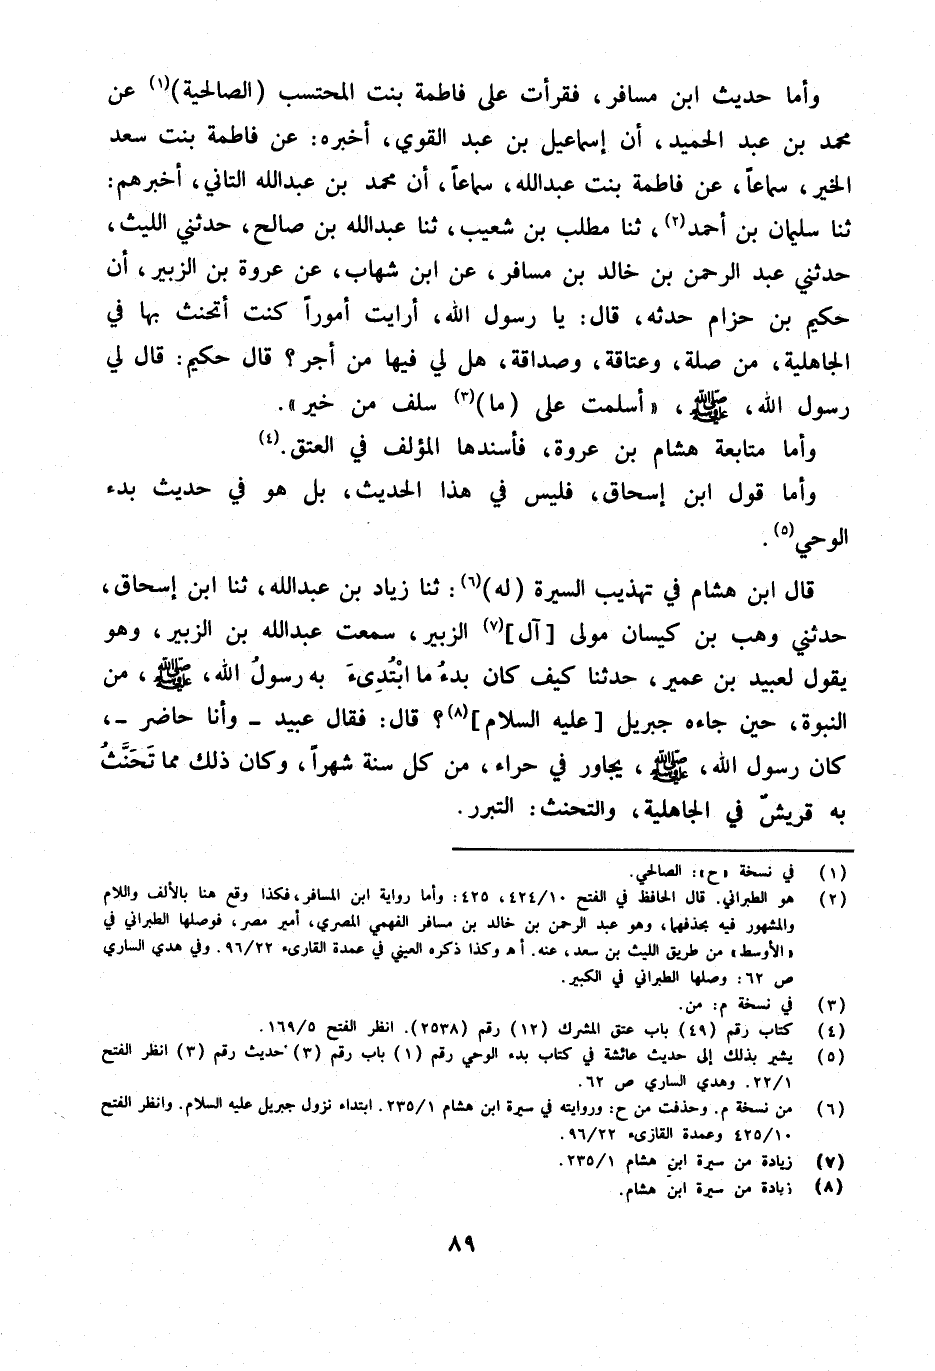 وأما حديث ابن مسافر، فقرأت على فاطمة بنت المحتسب (الصالحية)(١) عن
محمد بن عبد الحميد، أن إسماعيل بن عبد القوي، أخبره: عن فاطمة بنت سعد
الخير، سماعاً، عن فاطمة بنت عبدالله، سماعاً، أن محمد بن عبدالله التاني، أخبرهم:
ثنا سليمان بن أحمد(٢)، ثنا مطلب بن شعيب، ثنا عبدالله بن صالح، حدثني الليث،
حدثني عبد الرحمن بن خالد بن مسافر، عن ابن شهاب، عن عروة بن الزبير، أن
حكيم بن حزام حدثه، قال: يا رسول الله، أرايت أموراً كنت أتحنث بها في
الجاهلية، من صلة، وعتاقة، وصداقة، هل لي فيها من أجر؟ قال حكيم: قال لي
رسول الله، ﷺ، «أسلمت على (ما)(٣) سلف من خير».
وأما متابعة هشام بن عروة، فأسندها المؤلف في العتق.(٤)
وأما قول ابن إسحاق، فليس في هذا الحديث، بل هو في حديث بدء
الوحي(٥).
قال ابن هشام في تهذيب السيرة (له)(٦): ثنا زياد بن عبدالله، ثنا ابن إسحاق،
حدثني وهب بن كيسان مولى [آل](٧) الزبير، سمعت عبدالله بن الزبير، وهو
يقول لعبيد بن عمير، حدثنا كيف كان بدءُ ما ابْتُدِىءَ به رسولُ الله، ﷺ، من
النبوة، حين جاءه جبريل [عليه السلام](٨)؟ قال: فقال عبيد - وأنا حاضر -،
كان رسول الله، ﷺ، يجاور في حراء، من كل سنة شهراً، وكان ذلك مما تَحَنَّثُ
به قريشٌ في الجاهلية، والتحنث: التبرر.
(١) في نسخة «ح»: الصالحي.
(٢) هو الطبراني. قال الحافظ في الفتح ٤٢٤/١٠، ٤٢٥: وأما رواية ابن المسافر، فكذا وقع هنا بالألف واللام
والمشهور فيه بحذفها، وهو عبد الرحمن بن خالد بن مسافر الفهمي المصري، أمير مصر، فوصلها الطبراني في
«الأوسط» من طريق الليث بن سعد، عنه. أ هـ وكذا ذكره العيني في عمدة القارىء ٩٦/٢٢. وفي هدي الساري
ص ٦٢: وصلها الطبراني في الكبير.
(٣) في نسخة م: من.
(٤) كتاب رقم (٤٩) باب عتق المشرك (١٢) رقم (٢٥٣٨). انظر الفتح ١٦٩/٥.
(٥) يشير بذلك إلى حديث عائشة في كتاب بدء الوحي رقم (١) باب رقم (٣) حديث رقم (٣) انظر الفتح
٢٢/١. وهدي الساري ص ٦٢.
(٦) من نسخة م. وحذفت من ح: وروايته في سيرة ابن هشام ٢٣٥/١. ابتداء نزول جبريل عليه السلام. وانظر الفتح
٤٢٥/١٠ وعمدة القازىء ٩٦/٢٢.
(٧) زيادة من سيرة ابن هشام ٢٣٥/١.
(٨) زيادة من سيرة ابن هشام.
٨٩